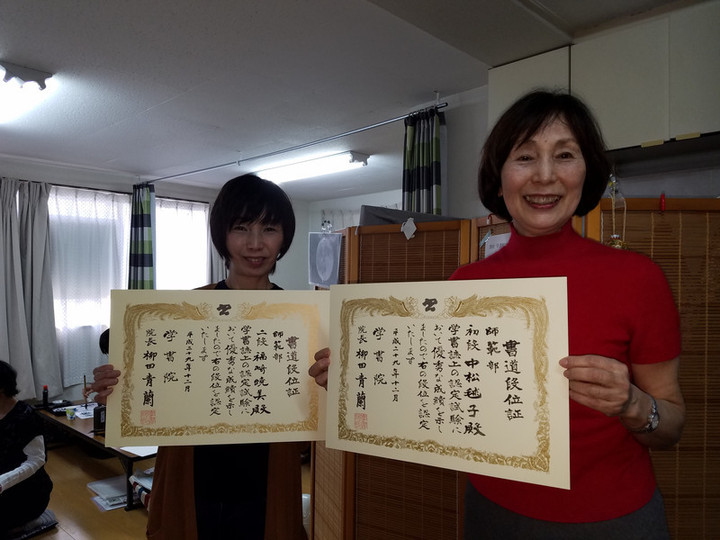 書道段位証
師範部
二段 福崎暁美殿
学書誌上の認定試験に
おいて優秀な成績を示し
ましたので右の段位を認定
いたします
平成二十九年十二月
学書院
院長 柳田青蘭
書道段位証
師範部
初段 中松穂子殿
学書誌上の認定試験に
おいて優秀な成績を示し
ましたので右の段位を認定
いたします
平成二十九年十二月
学書院
院長 柳田青蘭